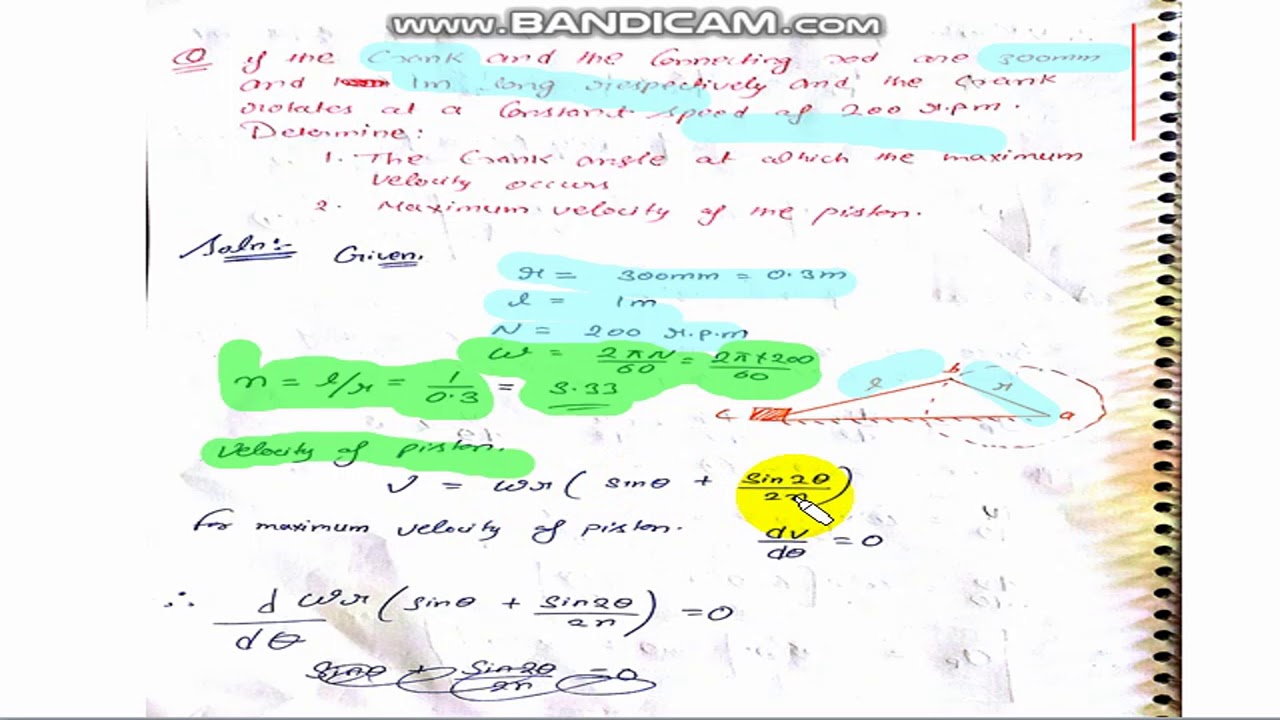 www.BANDICAM.com
Q If the Crank and the Connecting rod are 300mm
and 1m long respectively and the Crank
rotates at a Constant speed of 200 r.p.m.
Determine:
1. The Crank angle at which the maximum
velocity occurs
2. Maximum velocity of the piston.
Soln:- Given.
r = 300mm = 0.3m
l = 1m
N = 200 r.p.m
ω = 2πN/60 = 2π×200/60
n = l/r = 1/0.3 = 3.33
l b r
c a
Velocity of piston.
V = ωr ( sinθ + sin2θ/2n )
For maximum velocity of piston. dv/dθ = 0
∴ d/dθ ωr ( sinθ + sin2θ/2n ) = 0
sinθ + sin2θ/2n = 0